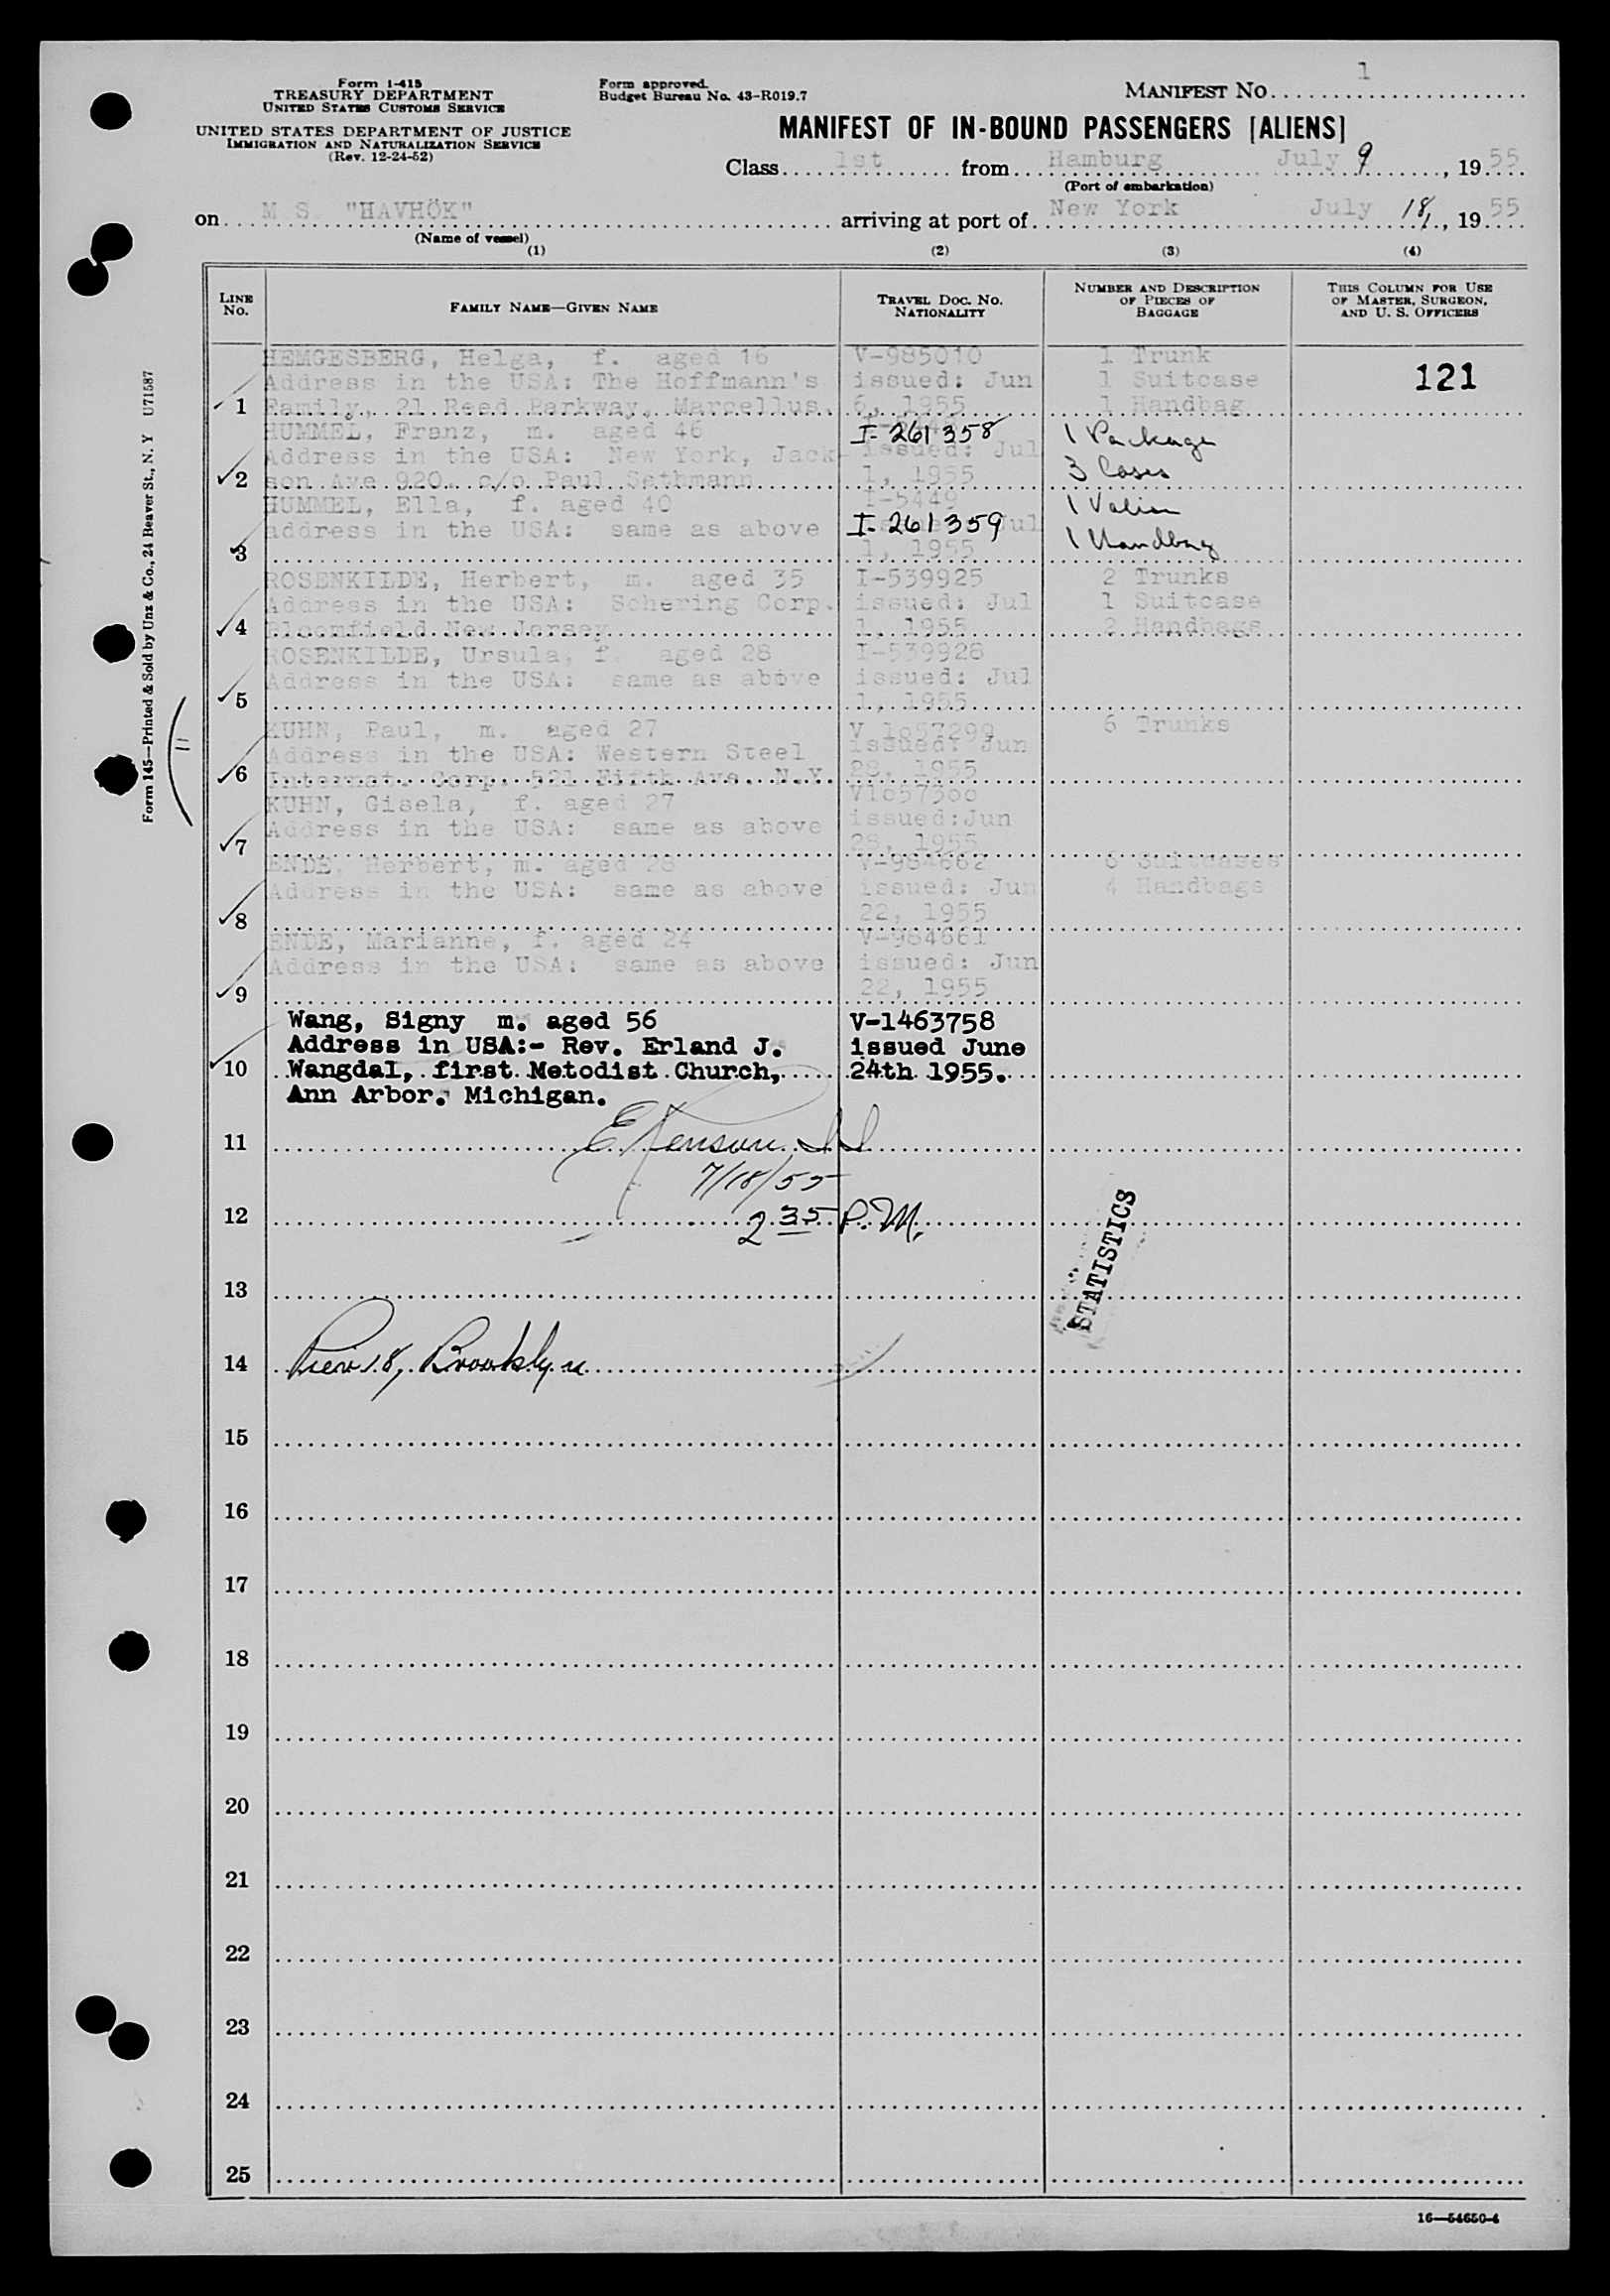 Form I-415
TREASURY DEPARTMENT
UNITED STATES CUSTOMS SERVICE
UNITED STATES DEPARTMENT OF JUSTICE
IMMIGRATION AND NATURALIZATION SERVICE
(Rev. 12-24-52)
Form approved.
Budget Bureau No. 43-R019.7
MANIFEST NO. 1
MANIFEST OF IN-BOUND PASSENGERS [ALIENS]
Class 1st from Hamburg July 9, 1955
(Port of embarkation)
on M S. "HAVHÖK" arriving at port of New York July 18, 1955
(Name of vessel)
(1) (2) (3) (4)
LINE NO. FAMILY NAME—GIVEN NAME TRAVEL DOC. NO. NATIONALITY NUMBER AND DESCRIPTION OF PIECES OF BAGGAGE THIS COLUMN FOR USE OF MASTER, SURGEON, AND U. S. OFFICERS
HEMGESBERG, Helga, f. aged 16 V-985010 1 Trunk
Address in the USA: The Hoffmann's issued: Jun 1 Suitcase 121
1 Family, 21 Reed Parkway, Marcellus. 6, 1955 1 Handbag
HUMMEL, Franz, m. aged 46 I-261358 1 Package
Address in the USA: New York, Jack- issued: Jul
2 son Ave 920. c/o Paul Sathmann 1, 1955 3 Cases
HUMMEL, Ella, f. aged 40 I-5449 1 Valise
address in the USA: same as above I-261359 Jul
3 1, 1955 1 Handbag
ROSENKILDE, Herbert, m. aged 35 I-539925 2 Trunks
Address in the USA: Schering Corp. issued: Jul 1 Suitcase
4 Bloomfield New Jersey 1, 1955 2 Handbags
ROSENKILDE, Ursula, f. aged 28 I-539926
Address in the USA: same as above issued: Jul
5 1, 1955
KUHN, Paul, m. aged 27 V 1057299 6 Trunks
Address in the USA: Western Steel issued: Jun
6 Internat. Corp. 521 Fifth Ave. N.Y. 28, 1955
KUHN, Gisela, f. aged 27 V1057300
Address in the USA: same as above issued:Jun
7 28, 1955
ENDE, Herbert, m. aged 28 V-984662 6 Suitcases
Address in the USA: same as above issued: Jun 4 Handbags
8 22, 1955
ENDE, Marianne, f. aged 24 V-984661
Address in the USA: same as above issued: Jun
9 22, 1955
Wang, Signy m. aged 56 V-1463758
Address in USA:- Rev. Erland J. issued June
10 Wangdal, first Metodist Church, 24th 1955.
Ann Arbor. Michigan.
11
7/18/55
12 2 35 P.M.
STATISTICS
13
14 Pier 18, Brooklyn
15
16
17
18
19
20
21
22
23
24
25
16—54650-4
Form 145—Printed & Sold by Unz & Co., 24 Beaver St., N. Y U71587
11